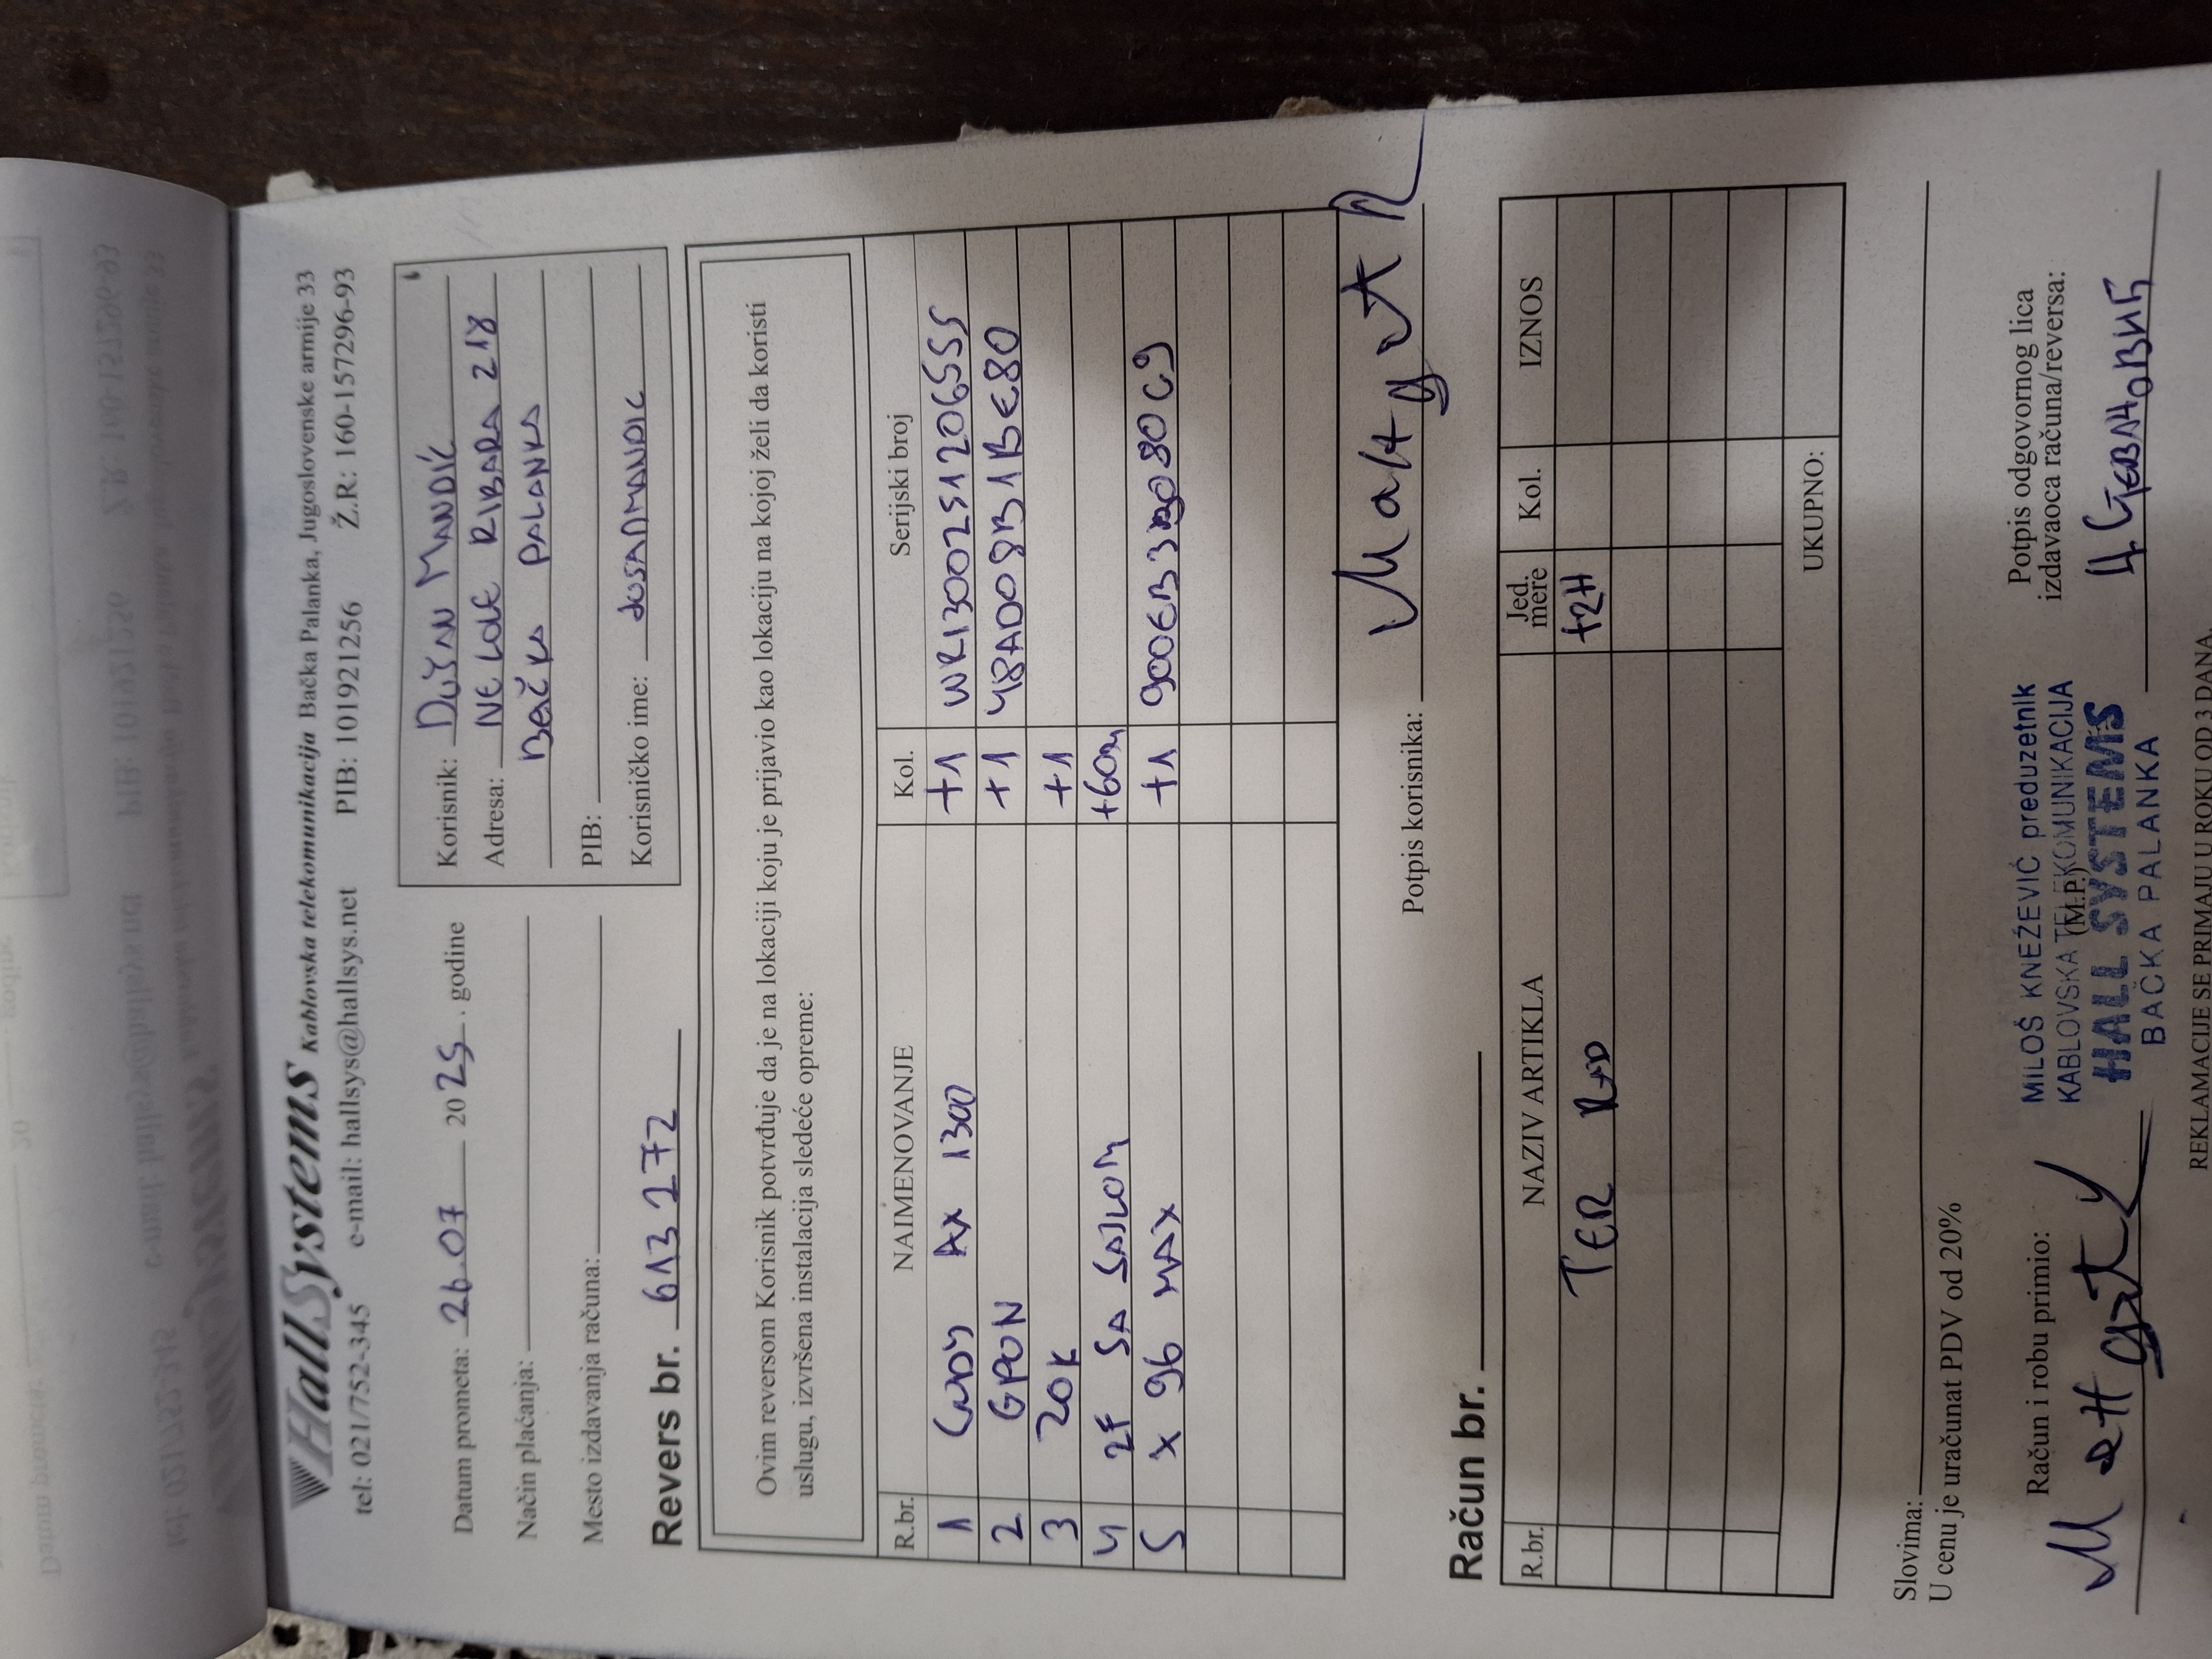 HallSystems Kablovska telekomunikacija Bačka Palanka, Jugoslovenske armije 33
tel: 021/752-345 e-mail: hallsys@hallsys.net PIB: 101921256 Ž.R.: 160-157296-93
Datum prometa: 26.07 2025. godine
Način plaćanja:
Mesto izdavanja računa:
Korisnik: DUŠAN MANDIĆ
Adresa: NE LOLE RIBARA 218
BAČKA PALANKA
PIB:
Korisničko ime: DUSANMANDIC
Revers br. 613272
Ovim reversom Korisnik potvrđuje da je na lokaciji koju je prijavio kao lokaciju na kojoj želi da koristi
uslugu, izvršena instalacija sledeće opreme:
R.br. NAIMENOVANJE Kol. Serijski broj
1 CUDY AX 1300 +1 WR1300251206555
2 GPON +1 48AD008B1BE80
3 ZOK +1
4 2F SA SAJLOM +60m
5 X 96 MAX +1
Potpis korisnika:
Račun br.
R.br. NAZIV ARTIKLA Jed. mere Kol. IZNOS
TER RAD +2H
UKUPNO:
Slovima:
U cenu je uračunat PDV od 20%
Račun i robu primio:
MILOŠ KNEŽEVIĆ preduzetnik
KABLOVSKA TELEKOMUNIKACIJA
(M.P.)
HALL SYSTEMS
BAČKA PALANKA
Potpis odgovornog lica
izdavaoca računa/reversa:
REKLAMACIJE SE PRIMAJU U ROKU OD 3 DANA.